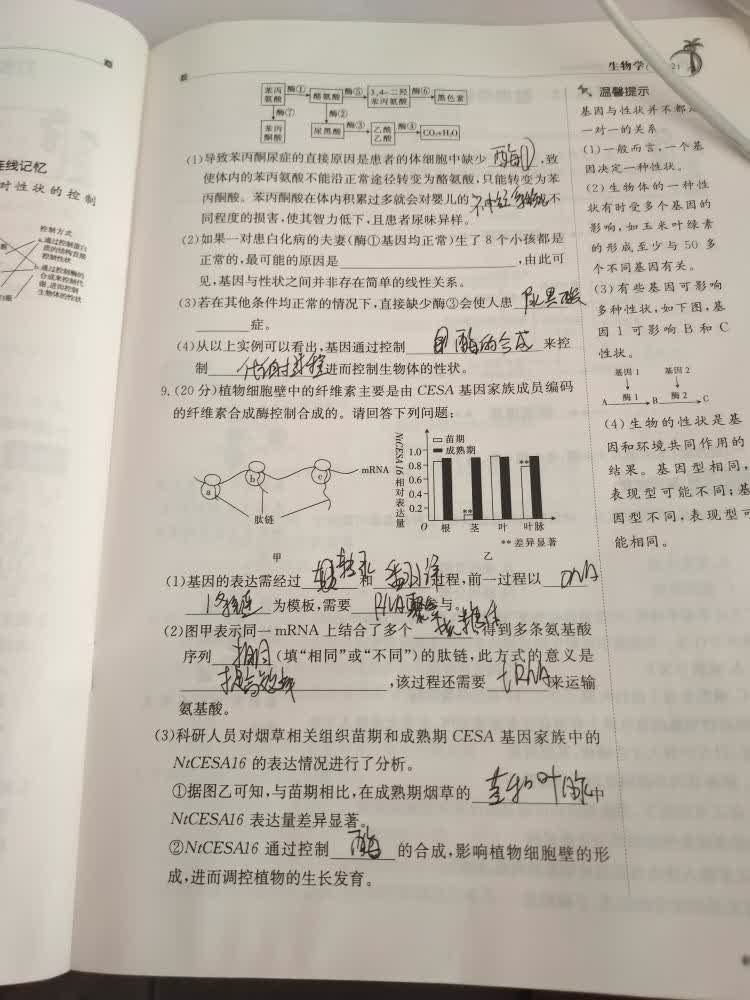 生物学(
苯丙氨酸 酶① 酪氨酸 酶⑤ 3,4-二羟苯丙氨酸 酶⑥ 黑色素
酶⑦ 酶②
苯丙酮酸 尿黑酸 酶③ 乙酰乙酸 酶④ CO₂+H₂O
(1)导致苯丙酮尿症的直接原因是患者的体细胞中缺少 酶① ,致
使体内的苯丙氨酸不能沿正常途径转变为酪氨酸,只能转变为苯
丙酮酸。苯丙酮酸在体内积累过多就会对婴儿的 神经系统 不
同程度的损害,使其智力低下,且患者尿味异样。
(2)如果一对患白化病的夫妻(酶①基因均正常)生了8个小孩都是
正常的,最可能的原因是 ,由此可
见,基因与性状之间并非存在简单的线性关系。
(3)若在其他条件均正常的情况下,直接缺少酶③会使人患 尿黑酸
症。
(4)从以上实例可以看出,基因通过控制 酶的合成 来控
制 代谢过程 进而控制生物体的性状。
9.(20分)植物细胞壁中的纤维素主要是由CESA基因家族成员编码
的纤维素合成酶控制合成的。请回答下列问题:
mRNA
a b c
肽链
甲
NtCESA16相对表达量
苗期
成熟期
1.0
0.8
0.6
0.4
0.2
O 根 茎 叶 叶脉
** **
**差异显著
乙
(1)基因的表达需经过 转录 和 翻译 过程,前一过程以 DNA
1条链 为模板,需要 RNA聚合 参与。
(2)图甲表示同一mRNA上结合了多个 核糖体 ,得到多条氨基酸
序列 相同 (填“相同”或“不同”)的肽链,此方式的意义是
提高效率 ,该过程还需要 tRNA 来运输
氨基酸。
(3)科研人员对烟草相关组织苗期和成熟期CESA基因家族中的
NtCESA16的表达情况进行了分析。
①据图乙可知,与苗期相比,在成熟期烟草的 茎和叶脉 中
NtCESA16表达量差异显著。
②NtCESA16通过控制 酶 的合成,影响植物细胞壁的形
成,进而调控植物的生长发育。
温馨提示
基因与性状并不都
一对一的关系
(1)一般而言,一个基
因决定一种性状。
(2)生物体的一种性
状有时受多个基因的
影响,如玉米叶绿素
的形成至少与50多
个不同基因有关。
(3)有些基因可影响
多种性状,如下图,基
因1可影响B和C
性状。
基因1 基因2
A 酶1 B 酶2 C
(4)生物的性状是基
因和环境共同作用的
结果。基因型相同,
表现型可能不同;基
因型不同,表现型可
能相同。
连线记忆
对性状的控制
控制方式
a.通过控制蛋白
质的结构直接
控制性状
b.通过控制酶的
合成来控制代
谢,进而控制
生物体的性状